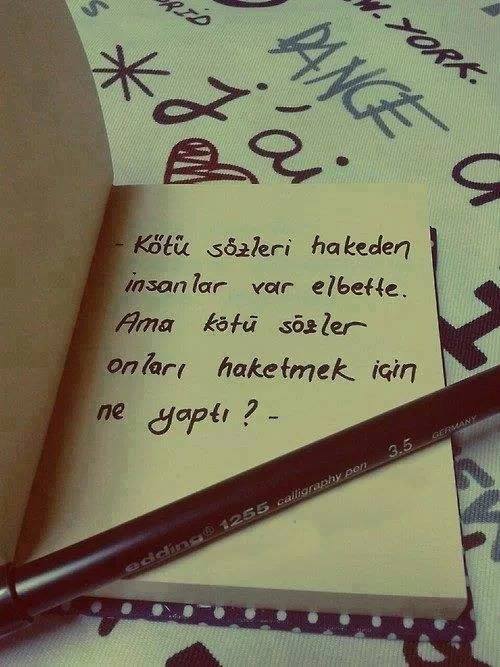 DRID
NEW.YORK.
DANCE
j'ai
- Kötü sözleri hakeden
insanlar var elbette.
Ama kötü sözler
onları haketmek için
ne yaptı? -
edding® 1255 calligraphy pen 3.5 GERMANY